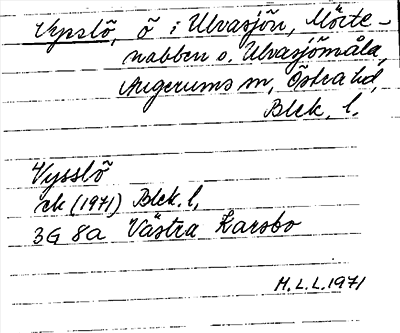 Vysslö, ö i Ulvasjön, Mörte-
nabben o. Ulvasjömåla,
Augerums sn, Östra hd,
Blek. l.
Vysslö
ek (1971) Blek. l.
3G 8a Västra Karsbo
H.L.L. 1971